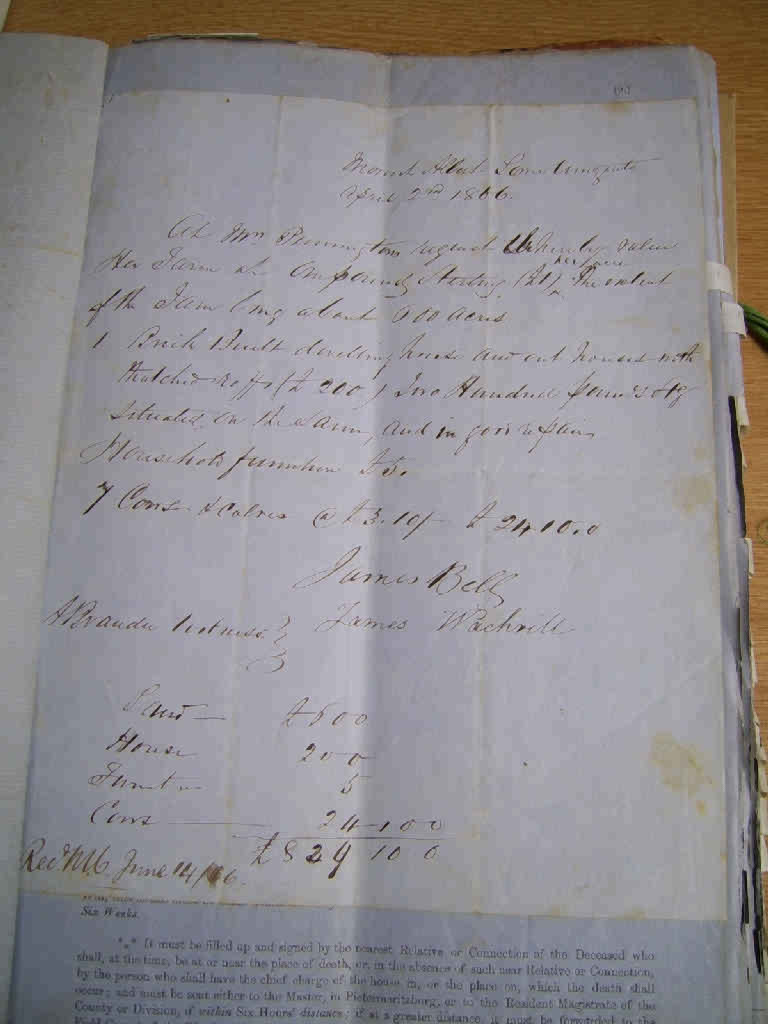 Mount Albert
April 2nd 1866.
At Mrs Pennington's request We hereby value
Her Farm at One pound Sterling (£1) per acre The extent
of the Farm being about 600 acres
1 Brick Built dwelling house and out houses with
thatched roofs (£ 200) Two Hundred pounds Stg
situated on the Farm, and in good repair
Household furniture £5.
7 Cows & Calves @ £3.10/- £ 24.10.0
James Bell
Witness } James
Land £600
House 200
Furnit 5
Cows 24 10 0
£829 10 0
Recd June 14/66.
Six Weeks.
*** It must be filled up and signed by the nearest Relative or Connection of the Deceased who
shall, at the time, be at or near the place of death, or, in the absence of such near Relative or Connection,
by the person who shall have the chief charge of the house in, or the place on, which the death shall
occur; and must be sent either to the Master, in Pietermaritzburg, or to the Resident Magistrate of the
County or Division, if within Six Hours' distance; if at a greater distance, it must be forwarded